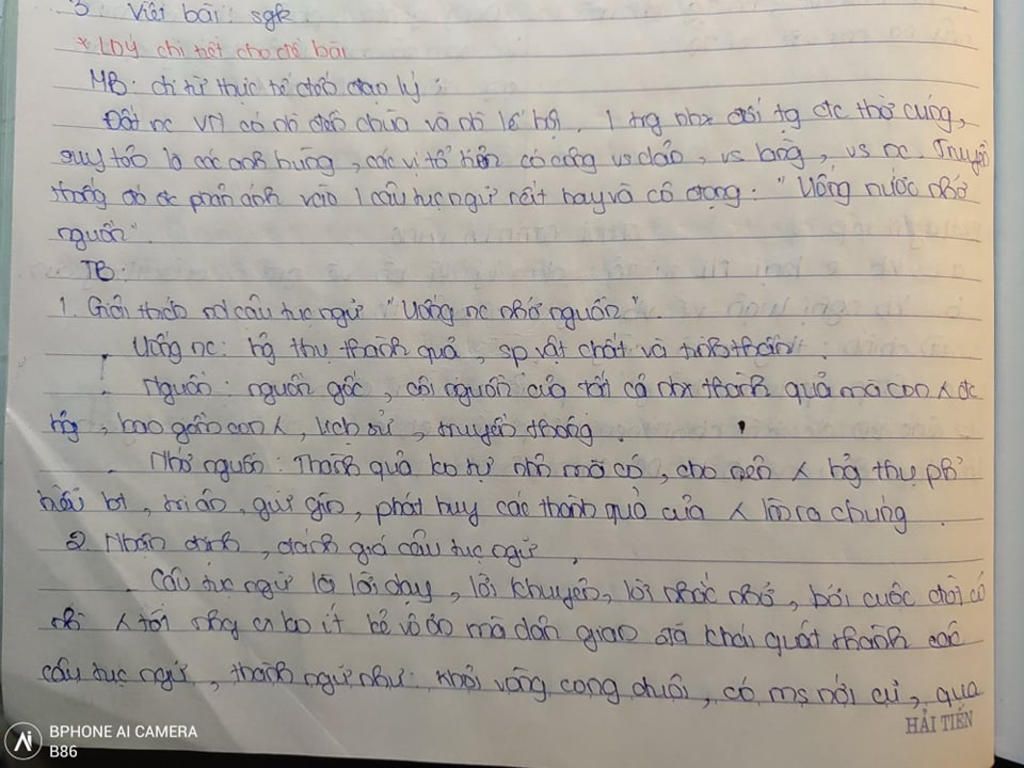 3. Viết bài: sgk
* LDY chi tiết cho đề bài
MB: đi từ thực tế đến đạo lý:
Đất nc VN có nh đền chùa và nh lễ hội. 1 trg nhx đối tg đc thờ cúng,
suy tôn là các anh hùng, các vị tổ tiên có công vs dân, vs làng, vs nc. Truyền
thống đó đc phản ánh vào 1 câu tục ngữ rất hay và cô đọng: "Uống nước nhớ
nguồn".
TB:
1. Giải thích nd câu tục ngữ "Uống nc nhớ nguồn".
. Uống nc: hg thụ thành quả, sp vật chất và tinh thần.
. Nguồn: nguồn gốc, cội nguồn của tất cả nhx thành quả mà con λ đc
hg, bao gồm con λ, lịch sử, truyền thống.
. Nhớ nguồn: Thành quả ko tự nhiên mà có, cho nên λ hg thụ phải
hiểu bt, tri ân, giữ gìn, phát huy các thành quả của λ làm ra chúng.
2. Nhận định, đánh giá câu tục ngữ.
. Câu tục ngữ là lời dạy, lời khuyên, lời nhắc nhở, bởi cuộc đời có
nh λ tốt nhg cũng ko ít kẻ vô ơn mà dân gian đã khái quát thành các
câu tục ngữ, thành ngữ như: khỏi vòng cong đuôi, có ms nới cũ, qua
HẢI TIẾN
BPHONE AI CAMERA
B86